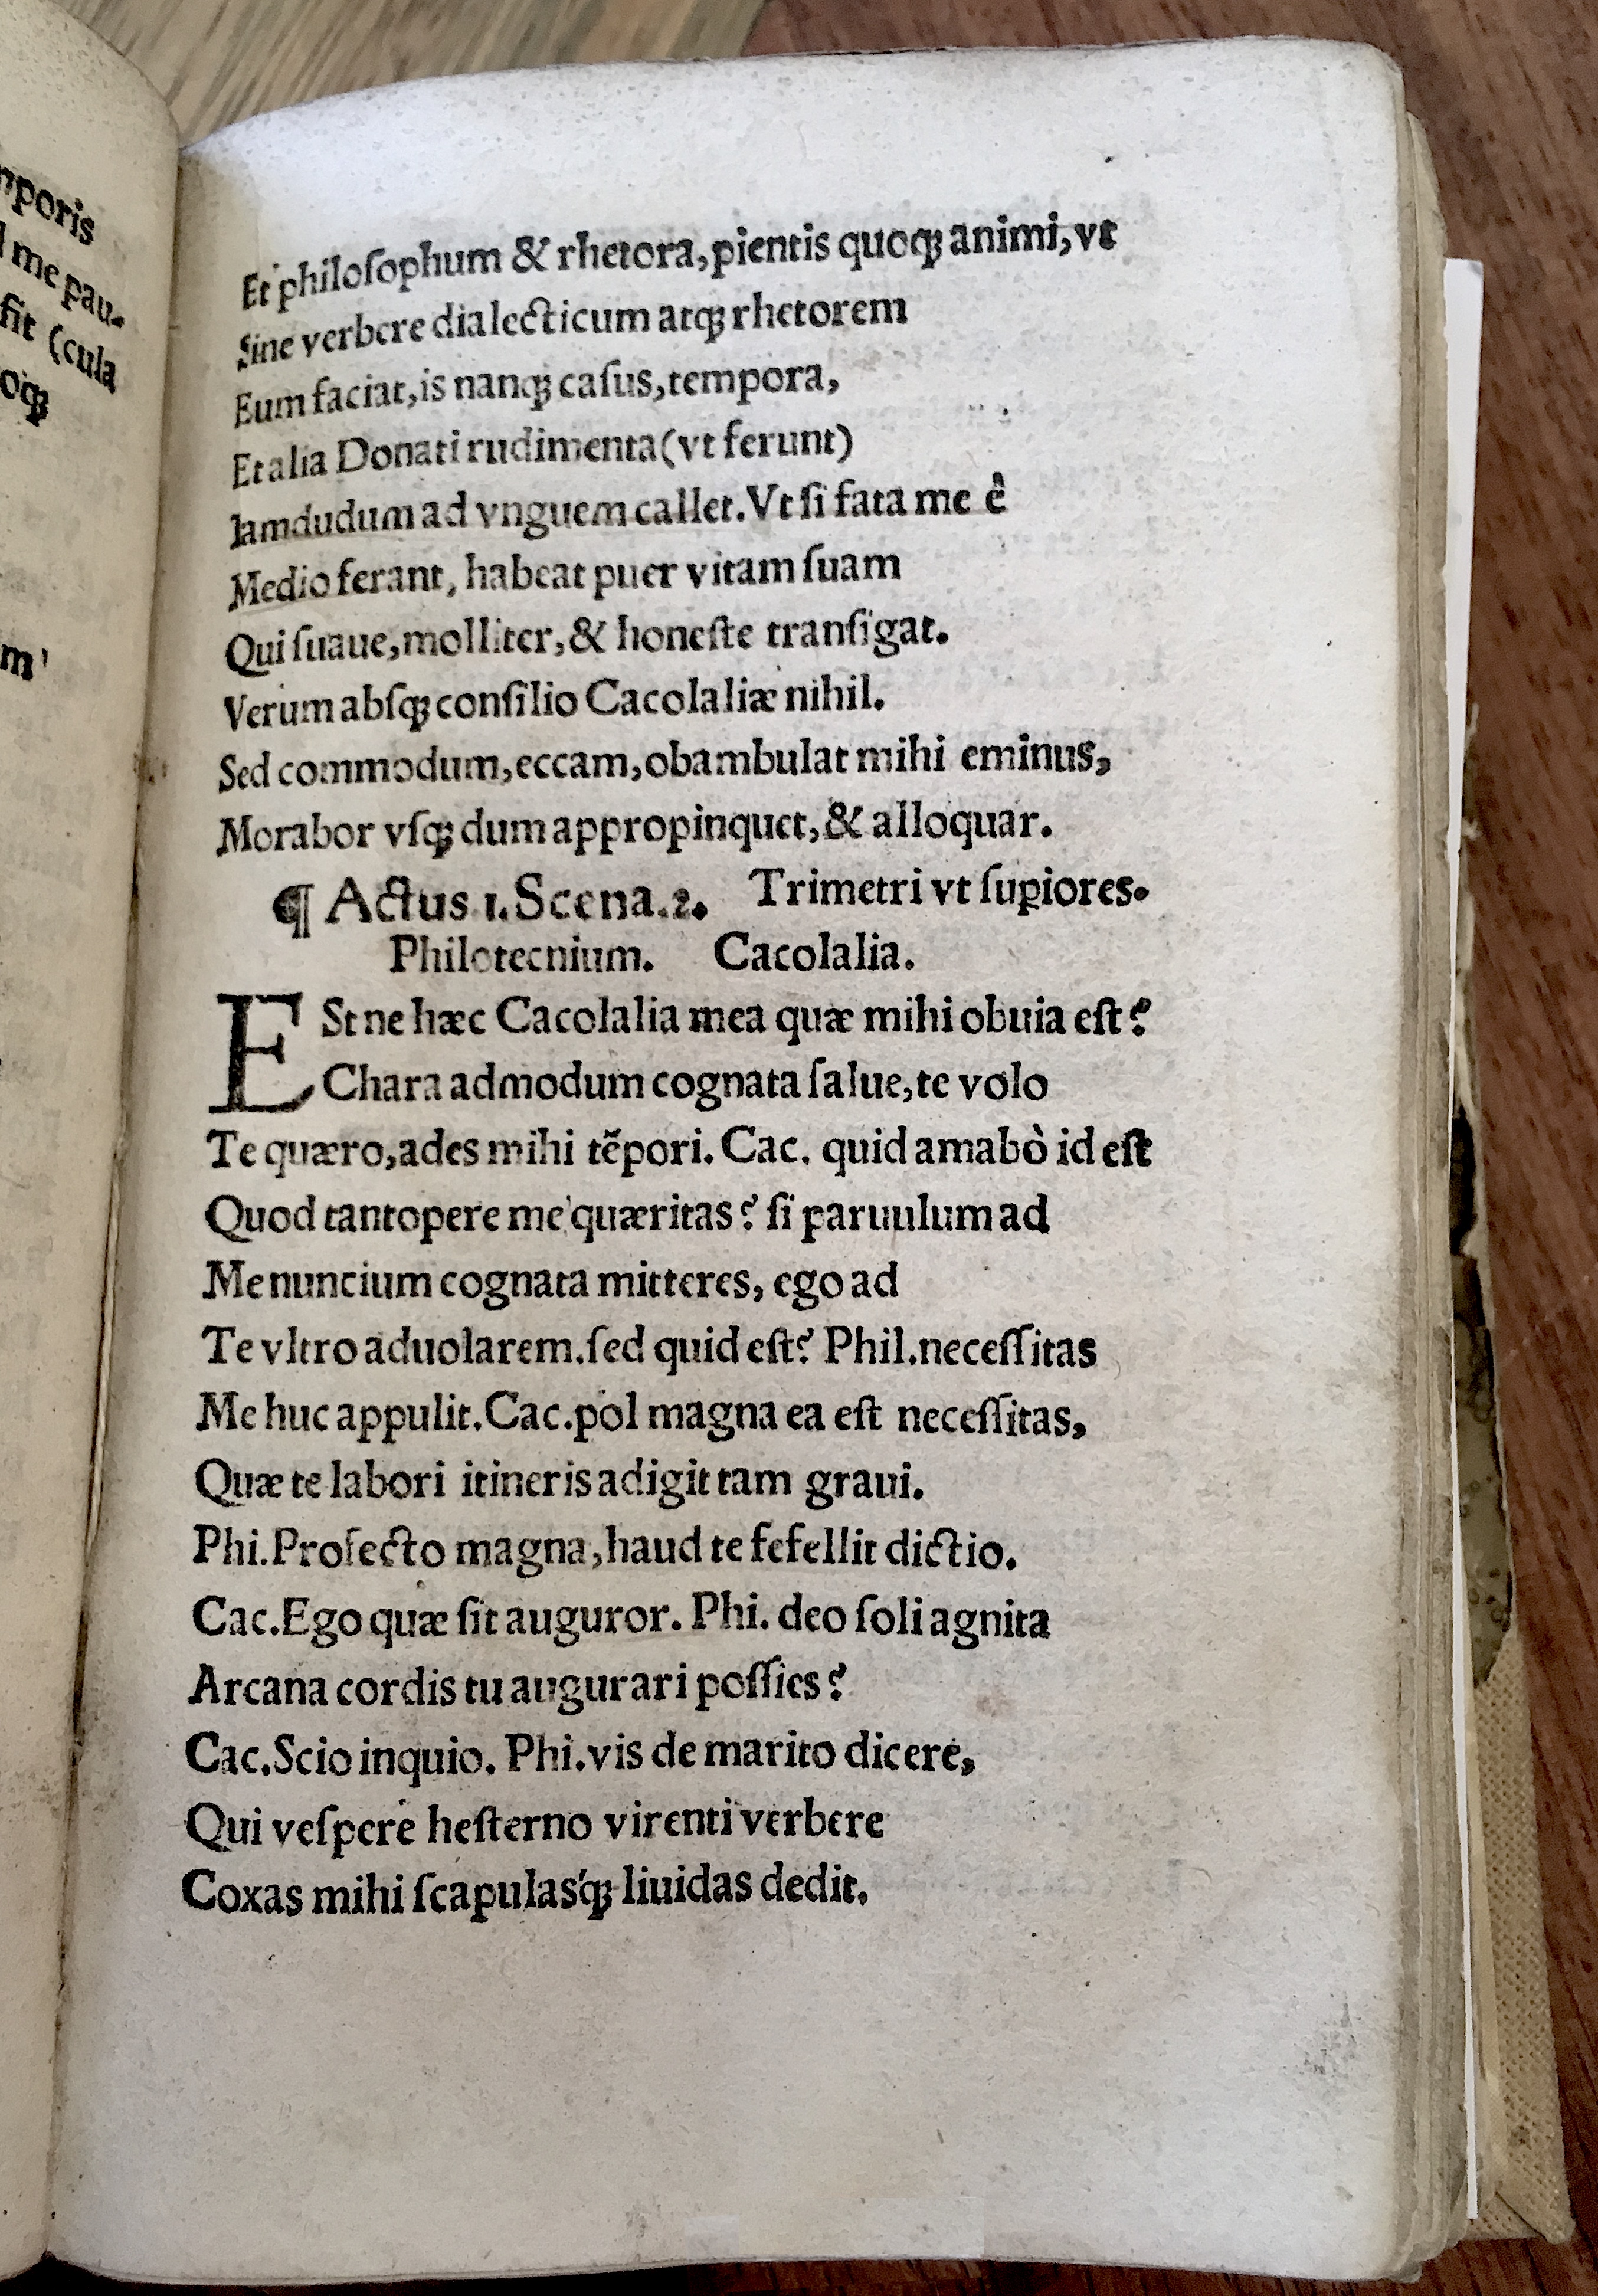 mporis
me pau-
fit (cula
oq̃
m'
Et philoſophum & rhetora, pientis quoq; animi, vt
Sine verbere dialecticum atq; rhetorem
Eum faciat, is nanq; caſus, tempora,
Et alia Donati rudimenta (vt ferunt)
Iamdudum ad vnguem callet. Vt ſi fata me ê
Medio ferant, habeat puer vitam ſuam
Qui ſuaue, molliter, & honeſte tranſigat.
Verum abſq; conſilio Cacolaliæ nihil.
Sed commodum, eccam, obambulat mihi eminus,
Morabor vſq; dum appropinquet, & alloquar.
¶ Actus 1. Scena. 2. Trimetri vt ſuꝑiores.
Philotecnium. Cacolalia.
ESt ne hæc Cacolalia mea quæ mihi obuia eſt?
Chara admodum cognata ſalue, te volo
Te quæro, ades mihi tẽpori. Cac. quid amabò id eſt
Quod tantopere me quæritas? ſi paruulum ad
Me nuncium cognata mitteres, ego ad
Te vltro aduolarem. ſed quid eſt? Phil. neceſſitas
Me huc appulit. Cac. pol magna ea eſt neceſſitas,
Quæ te labori itineris adigit tam graui.
Phi. Profecto magna, haud te fefellit dictio.
Cac. Ego quæ ſit auguror. Phi. deo ſoli agnita
Arcana cordis tu augurari poſſies?
Cac. Scio inquio. Phi. vis de marito dicere,
Qui veſpere heſterno virenti verbere
Coxas mihi ſcapulas'q; liuidas dedit.